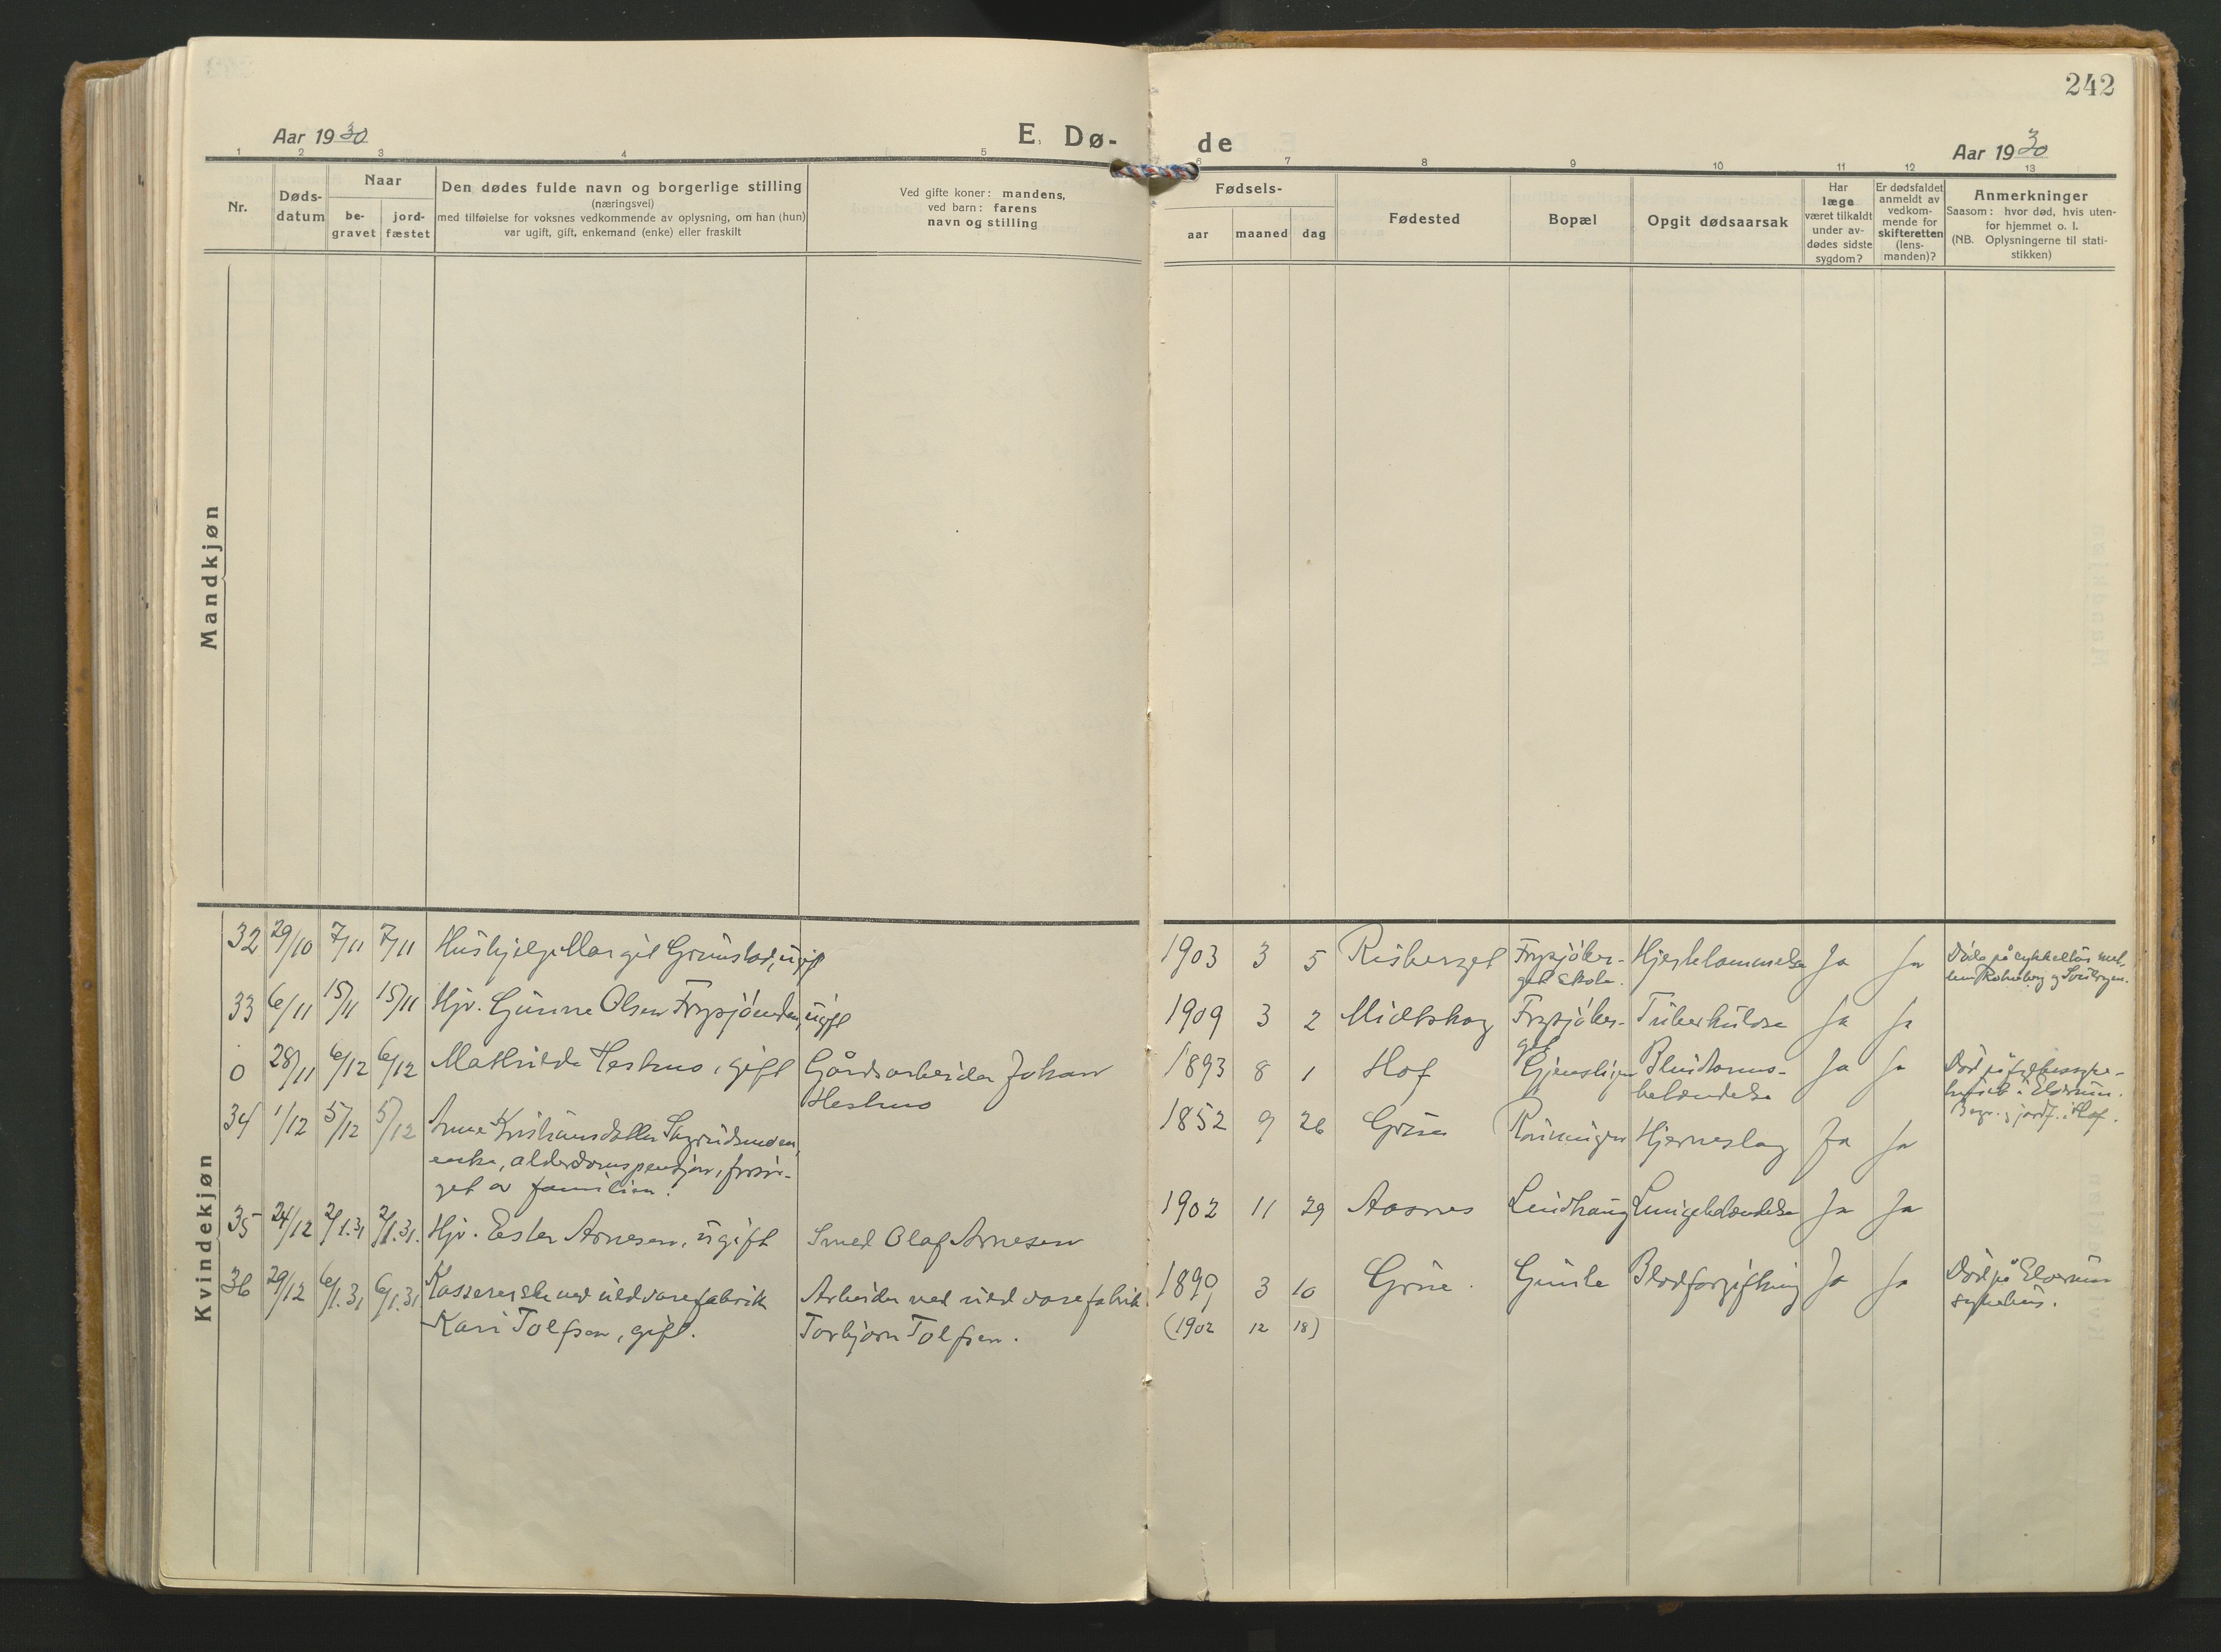 242
Aar 1930
E. Dø-
de
Aar 1930
1 2 3 4 5 6 7 8 9 10 11 12 13
Nr.
Døds-
datum
Naar
be-
gravet
jord-
fæstet
Den dødes fulde navn og borgerlige stilling
(næringsvei)
med tilføielse for voksnes vedkommende av oplysning, om han (hun)
var ugift, gift, enkemand (enke) eller fraskilt
Ved gifte koner: mandens,
ved barn: farens
navn og stilling
Fødsels-
aar maaned dag
Fødested
Bopæl
Opgit dødsaarsak
Har
læge
været tilkaldt
under av-
dødes sidste
sygdom?
Er dødsfaldet
anmeldt av
vedkom-
mende for
skifteretten
(lens-
manden)?
Anmerkninger
Saasom: hvor død, hvis uten-
for hjemmet o. l.
(NB. Oplysningerne til stati-
stikken)
Mandkjøn
Kvindekjøn
32 29/10 7/11 7/11 Hushjelp Margit Grunstad, ugift 1903 3 5 Risberget Frysjøber- Hjertelammelse Ja Ja
get skole.
33 6/11 15/11 15/11 Hjv. Gunne Olsen ugift 1909 3 2 Midtskog Frysjøber- Tuberkulose Ja Ja
get
0 28/11 6/12 6/12 Mathilde Heshus, gift Gårdsarbeider Johan 1893 8 1 Hof Ja Ja
Heshus
betændelse
Begr. og jordf. i Hof.
34 1/12 5/12 5/12 Anne Kristiansdatter 1852 9 26 Grue Hjerneslag Ja Ja
enke, alderdomspensjon, forsør-
get av familien.
35 24/12 2/1.31 2/1.31. Hjv. Ester Arnesen, ugift Smed Olaf Arnesen 1902 11 29 Aasnes Lindhaug Lungebetændelse Ja Ja
36 29/12 6/1.31 6/1.31 Kassererske ved uldvarefabrik Arbeider ved uldvarefabrik 1899 3 10 Grue Blodforgiftning Ja Ja Død på Elverum
sykehus.
Kari Tolfsen, gift. Torbjørn Tolfsen. (1902 12 18)